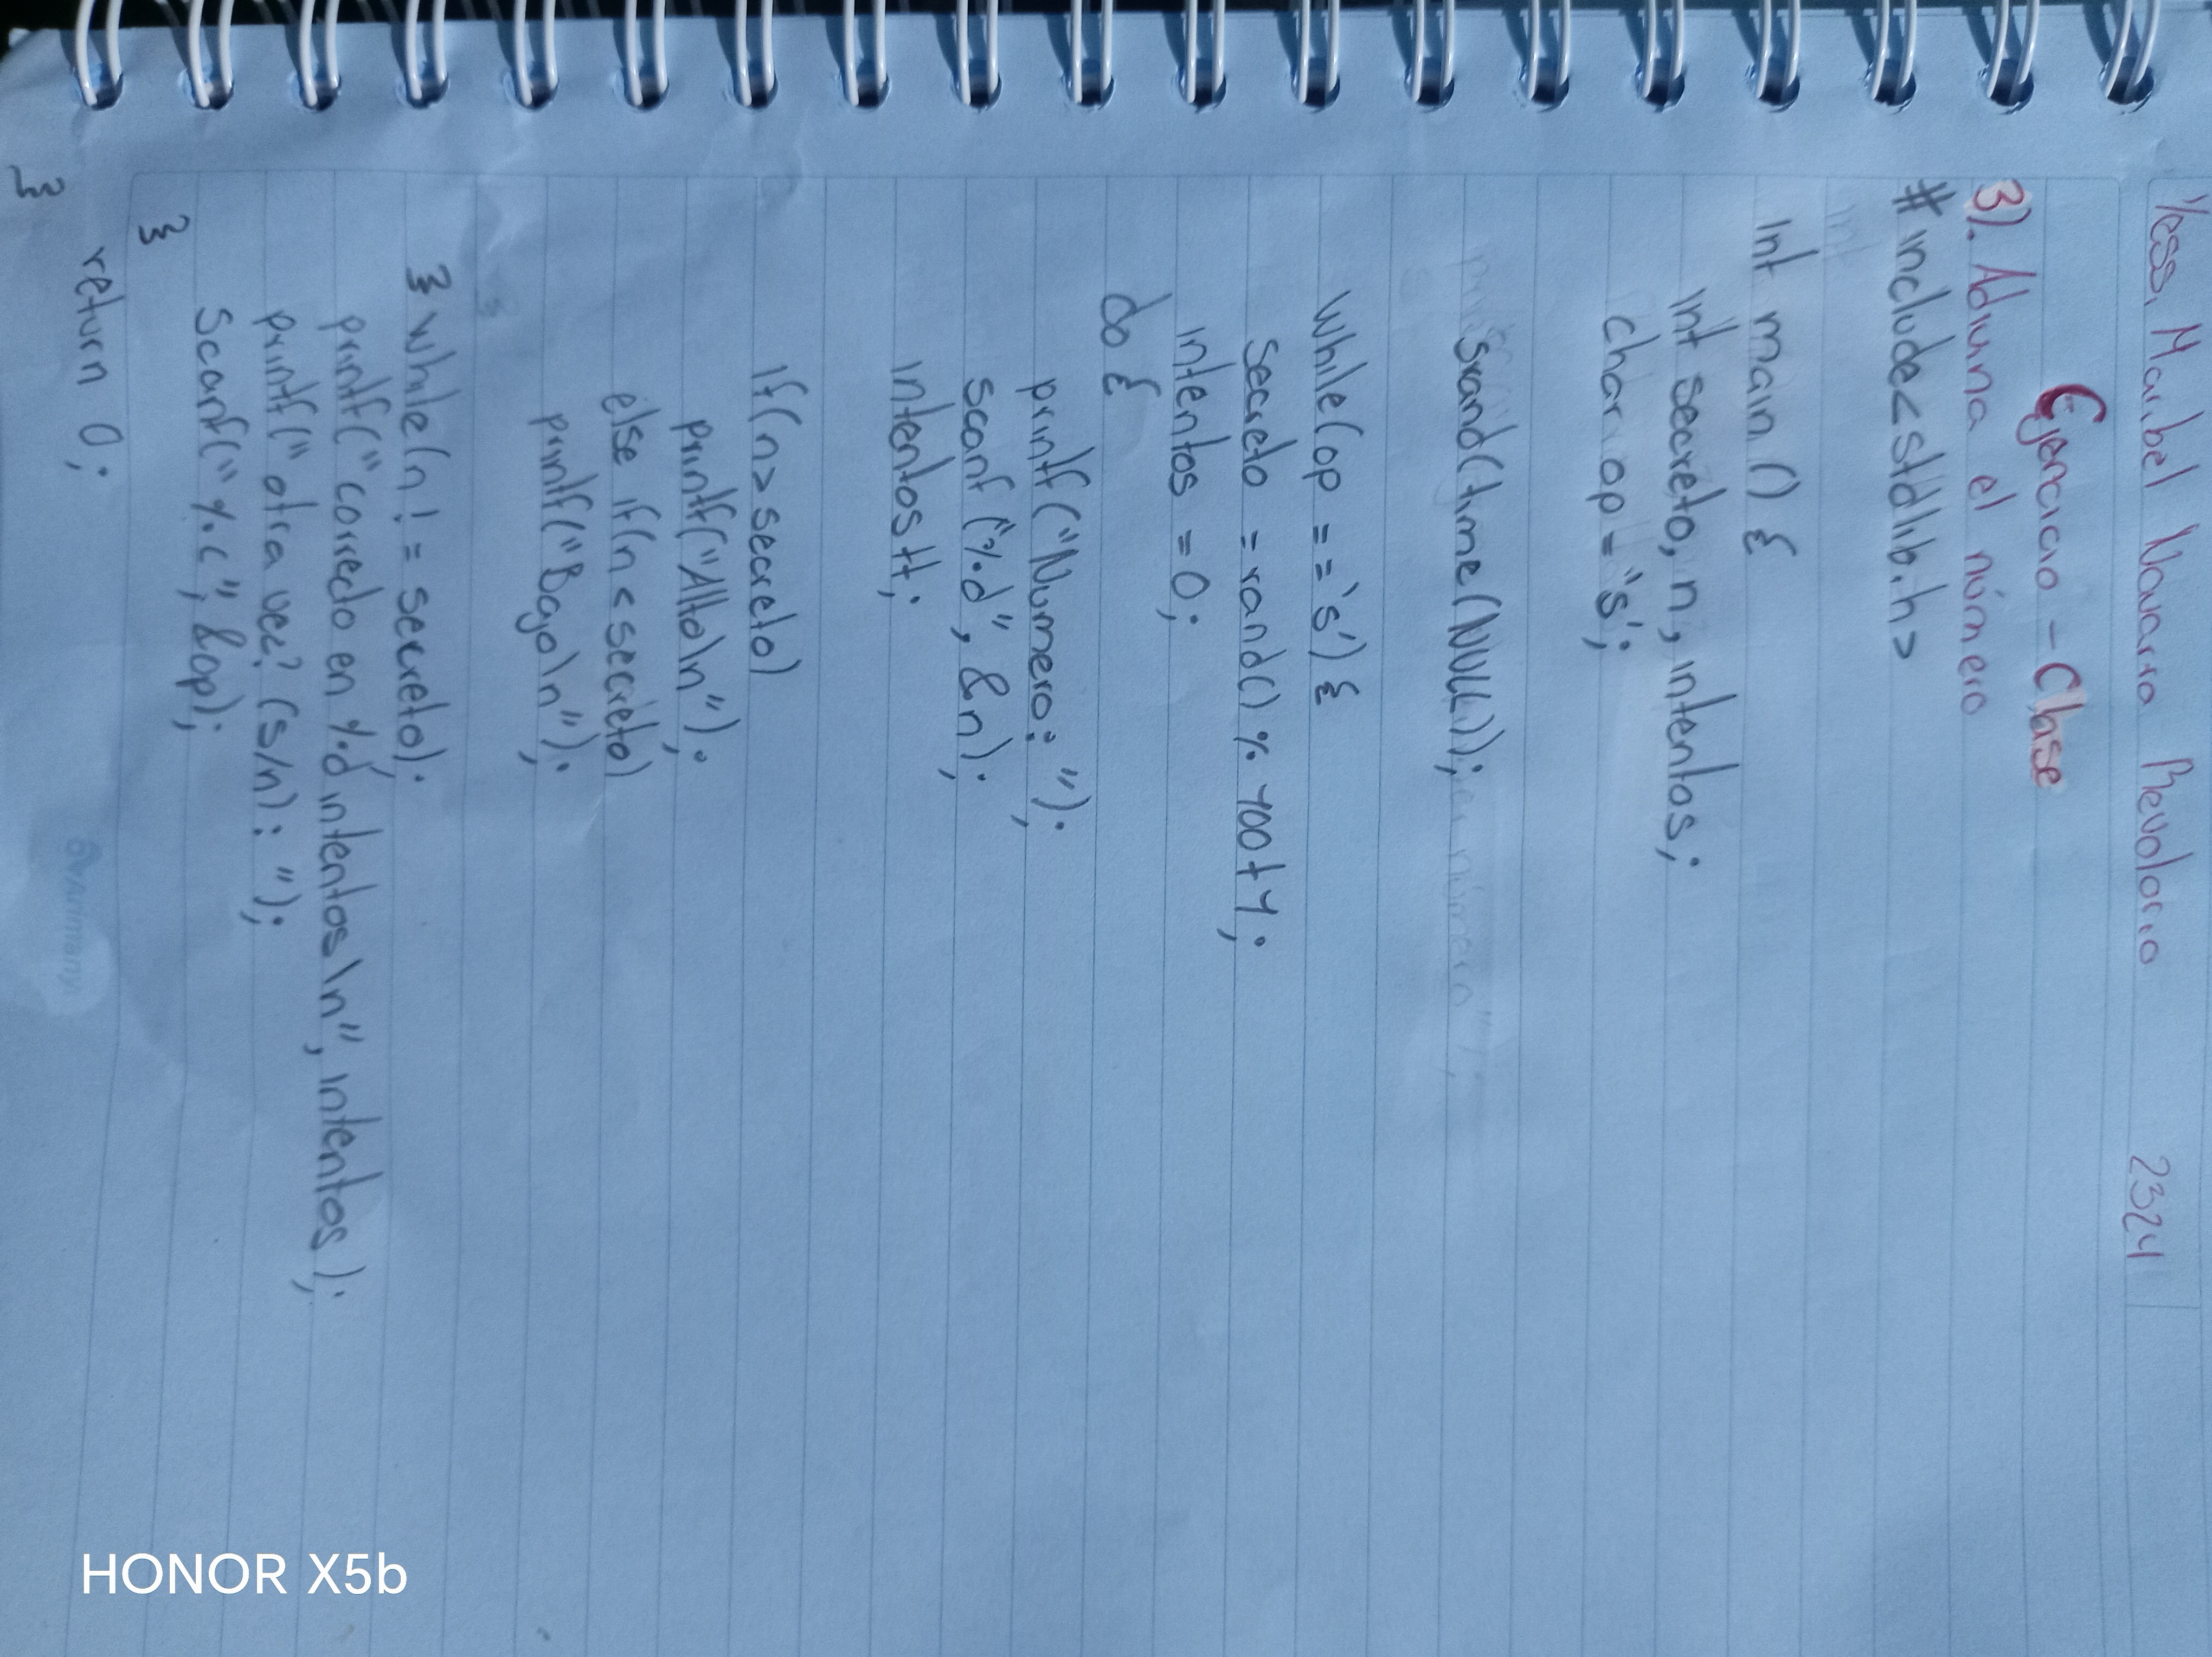 Yess. Maribel Navarro Revolorio 2324
Ejercicio - Clase
3). Adivina el número
# include<stdlib.h>
int main () {
int secreto, n, intentos;
char op = 's';
srand(time(NULL));
while(op == 's') {
secreto = rand() % 100+1;
intentos = 0;
do {
printf("Numero: ");
scanf("%d", &n);
intentos++;
if(n > secreto)
printf("Alto\n");
else if(n < secreto)
printf("Bajo\n");
} while(n != secreto);
printf("correcto en %d intentos\n", intentos);
printf("otra vez? (s/n): ");
scanf("%c", &op);
}
return 0;
}
HONOR X5b